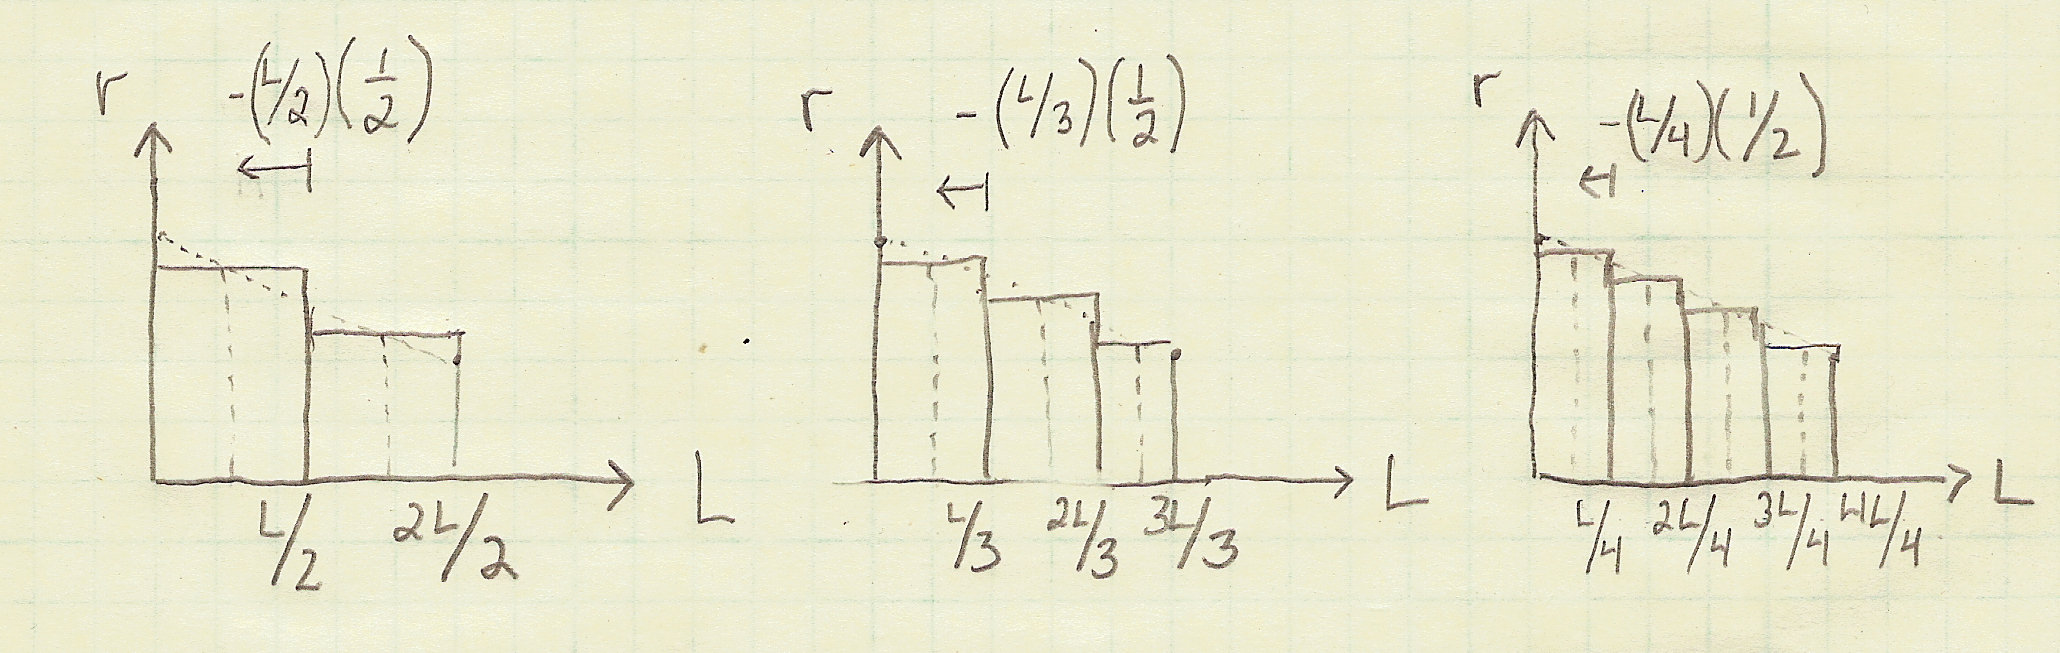 r -(L/2)(1/2)
L/2 2L/2 L
r -(L/3)(1/2)
L/3 2L/3 3L/3 L
r -(L/4)(1/2)
L/4 2L/4 3L/4 4L/4 L